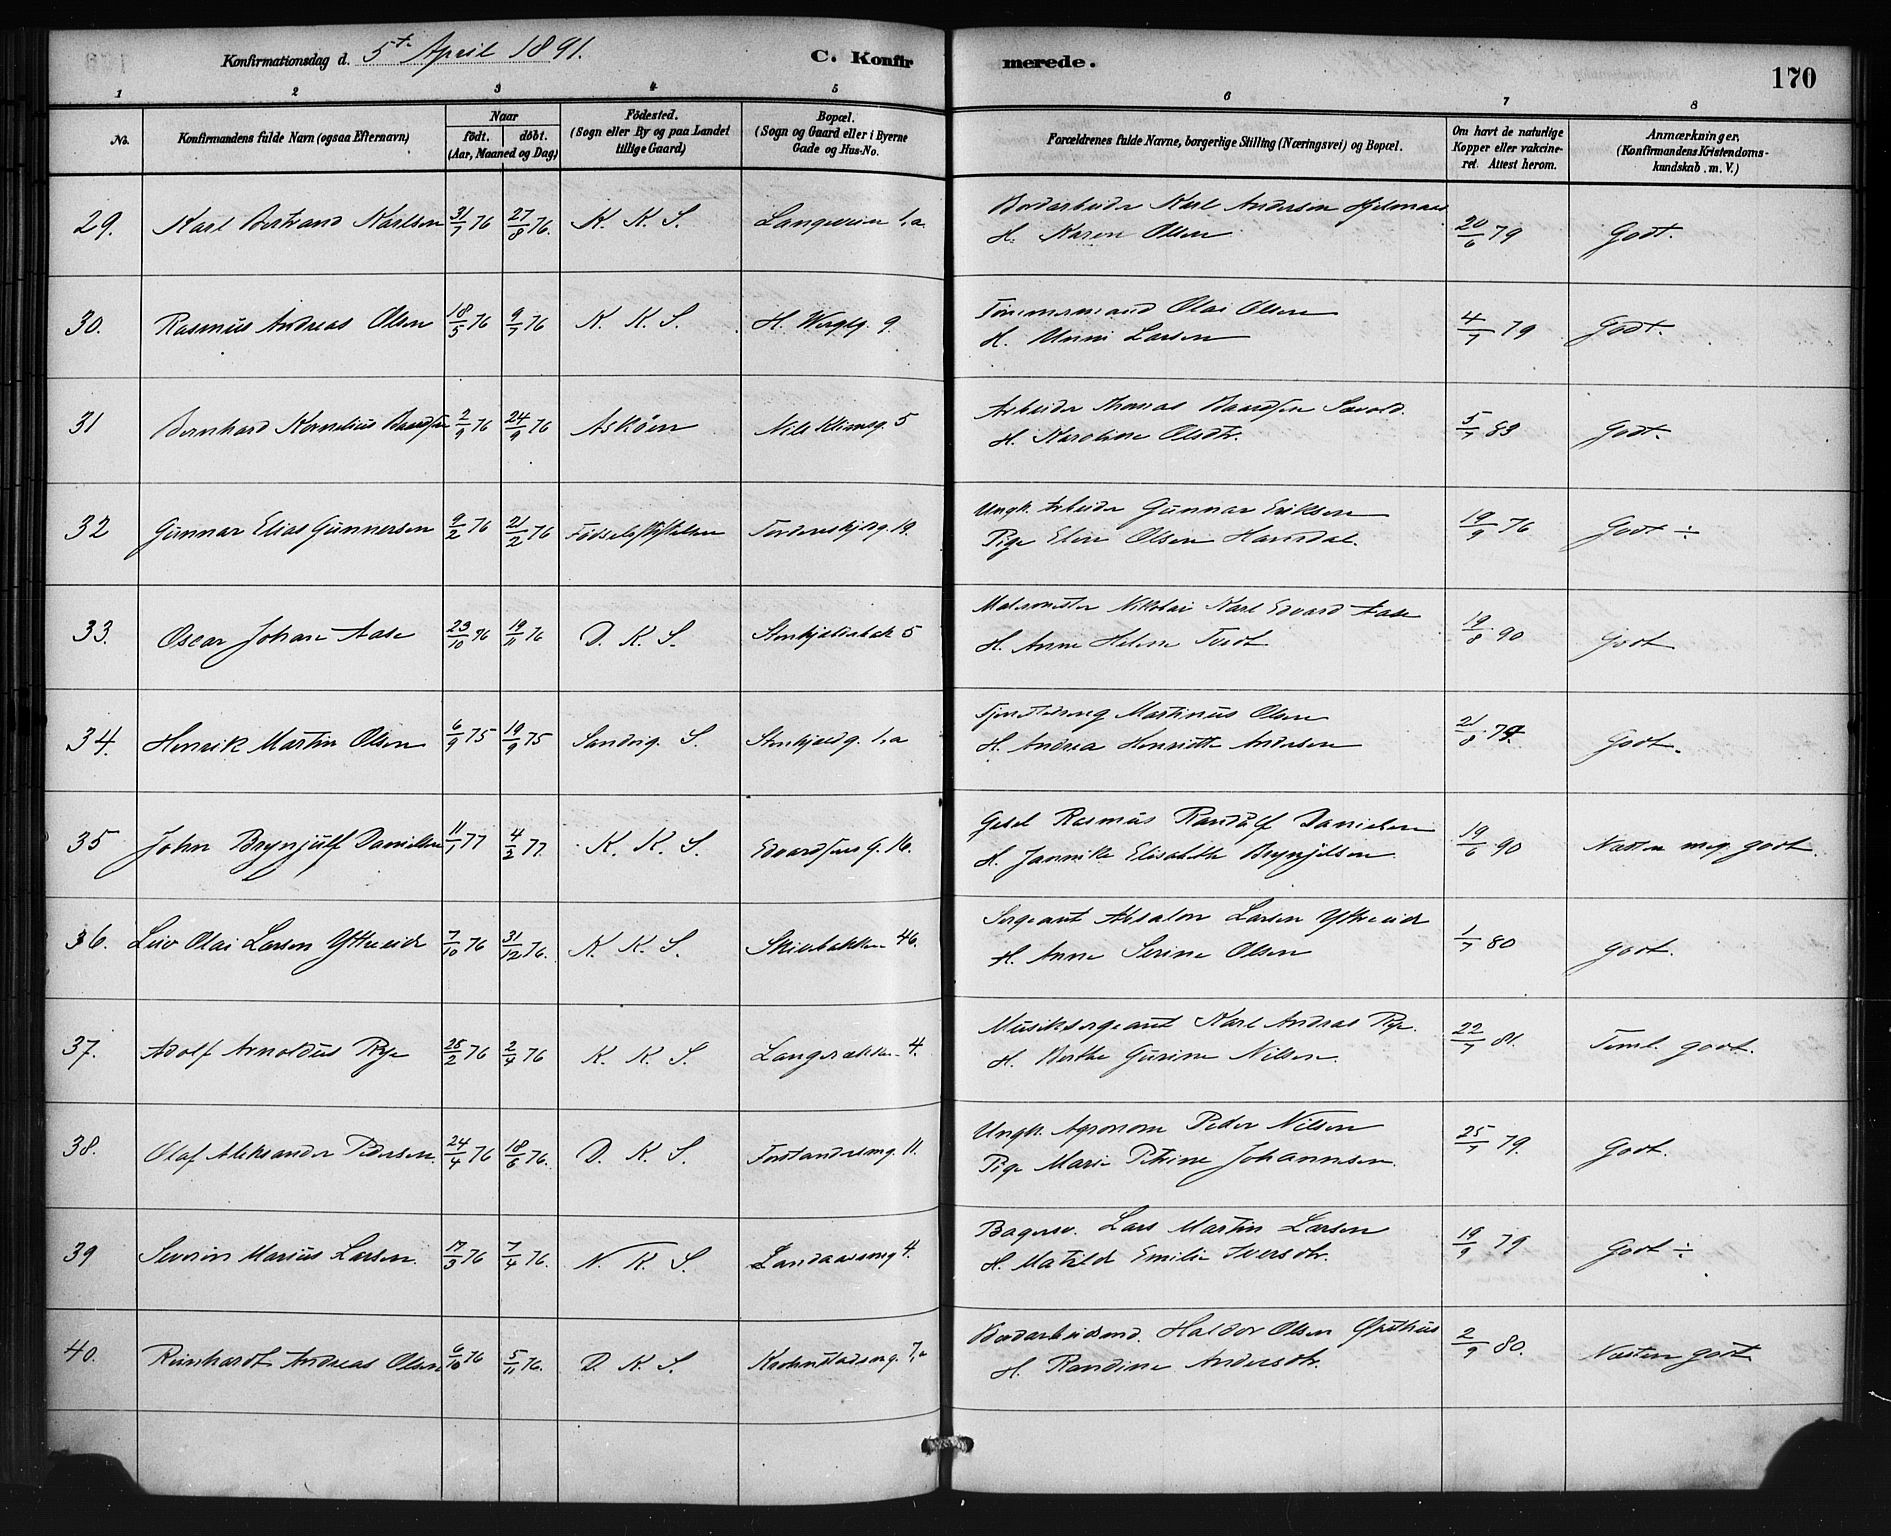 Konfirmationsdag d. 5te April 1891.
C. Konfirmerede.
170
1 2 3 4 5 6 7 8
No.
Konfirmandens fulde Navn (ogsaa Efternavn)
Naar
födt. döbt.
(Aar, Maaned og Dag)
Födested.
(Sogn eller By og paa Landet
tillige Gaard)
Bopæl.
(Sogn og Gaard eller i Byerne
Gade og Hus-No.
Forældrenes fulde Navne, borgerlige Stilling (Næringsvei) og Bopæl.
Om havt de naturlige
Kopper eller vakcine-
ret. Attest herom.
Anmærkninger,
(Konfirmandens Kristendoms-
kundskab .m. V.)
29. Karl Bertrand Karlsen 31/7 76 27/8 76. K. K. S. Langeveien 1,a
Bordarbeider Karl Andersen Hjelmaas
H. Karen Olsen
20/6 79 Godt.
30. Rasmus Andreas Olsen 18/5 76 9/7 76 K. K. S. H. Werglg. 9.
Tömmermand Olai Olsen
H. Unni Larsen
4/7 79 Godt.
31 Bernhard Kornelius Baardsen 2/9 76 24/9 76 Asköen Nils Klimsg. 5
Arbeider Thomas Baardsen
H. Karoline Olsdtr.
5/7 83 Godt.
32 Gunnar Elias Gunnersen 9/2 76 21/2 76 Födselsstiftelsen Tordenskjolsg. 19.
Ungk. Arbeider Gunnar Eriksen
Pige Eline Olsen Hamsdal.
19/9 76 Godt ÷
33. Oscar Johan Aase 23/10 76 19/11 76 D. K. S. Stenkjelerbak 5
Malermester Nikolai Karl Edvard Aase
H. Anne Helene Tvedt
19/8 90 godt
34. Henrik Martin Olsen 6/9 75 19/9 75 Sandvig. S. Stenkjeldg. 1,a
Martinus Olsen
H. Andrea Henriette Andersen
21/8 79. Godt.
35 John Brynjulf Danielsen 11/1 77 4/2 77. K. K. S. Edvardsens G. 16.
Gesel Rasmus Randulf Danielsen
H. Jannike Elisabeth Brynjelsen
19/6 90 Næsten meg. godt.
36. Olai Larsen Ytreeide 7/10 76 31/12 76. K. K. S. Skivebakken 46.
Sergeant Absalon Larsen Ytreeide
H. Anne Serine Olsen
1/7 80 godt.
37. Adolf Arnoldus Rye 25/2 76 2/4 76 K. K. S. 4.
Musiksergeant Karl Andreas Rye.
H. Berthe Gurine Nilsen.
22/7 81. Teml. godt.
38. Olaf Aleksander Pedersen. 24/4 76 18/6 76. D. K. S. Forstandersmg. 11.
Ungk. Agronom Peder Nilsen
Pige Marie Petrine Johannesen.
25/7 79. Godt.
39 Severin Marius Larsen. 17/3 76 7/4 76. N. K. S. Landaasvneg 4.
Bagersv. Lars Martin Larsen
H. Matilde Emilie Iversdtr.
19/9 79 Godt ÷
40. Reinhardt Andreas Olsen 6/10 76 5/11 76. D. K. S. 7,a
Bordarbeidsmd. Haldor Olsen
H. Randine Andersdtr.
2/9 80. Næsten godt